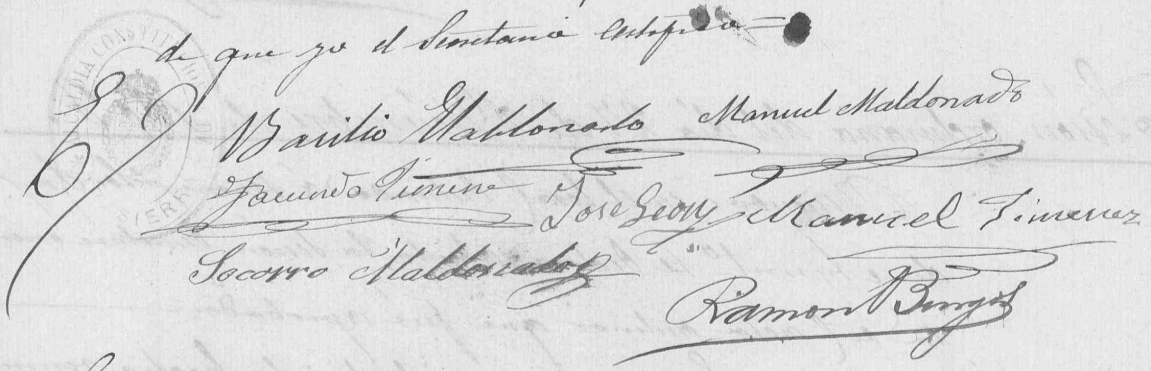 de que yo el Secretario certifico =
Basilio Maldonado Manuel Maldonado
Facundo Jimene José León Manuel Jimenez
Socorro Maldonado
Ramon Burgos